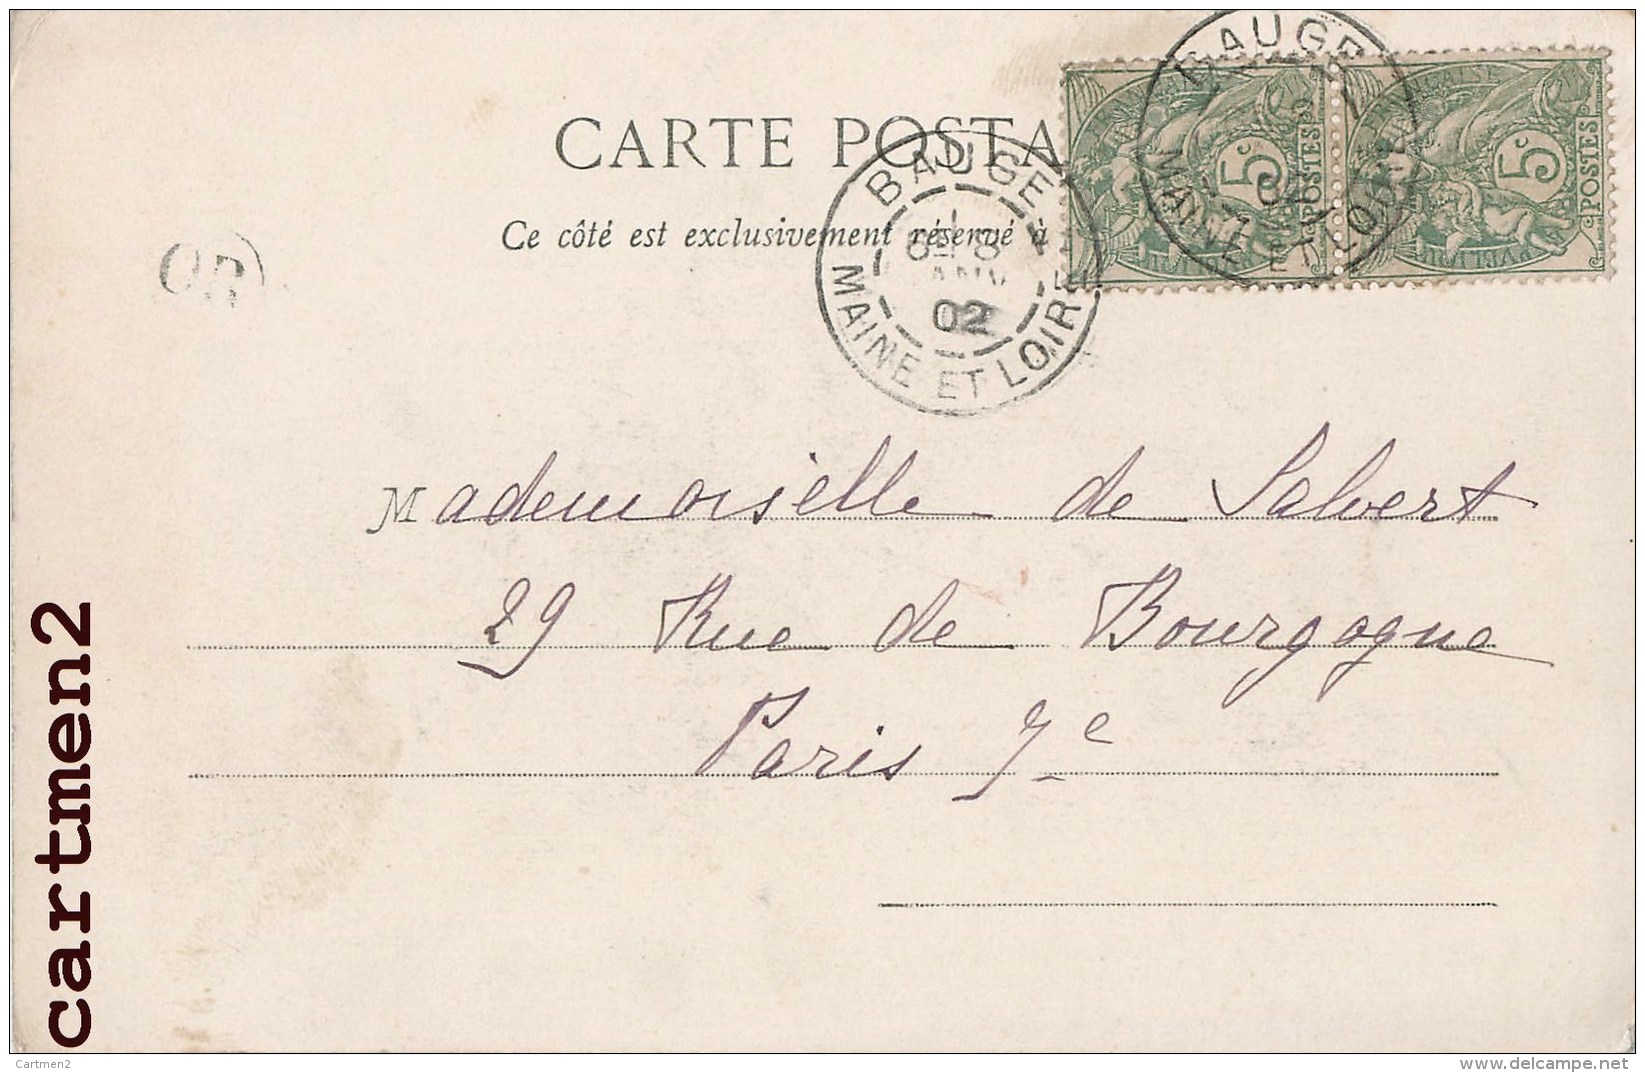 CARTE POSTA
Ce côté est exclusivement réservé à
BAUGE
8
JANV
02
MAINE ET LOIRE
BAUGE
MAINE ET LOIRE
5c
POSTES
5c
POSTES
OR
Mademoiselle de Salvert
29 Rue de Bourgogne
Paris 7e
cartmen2
Cartmen2
www.delcampe.net